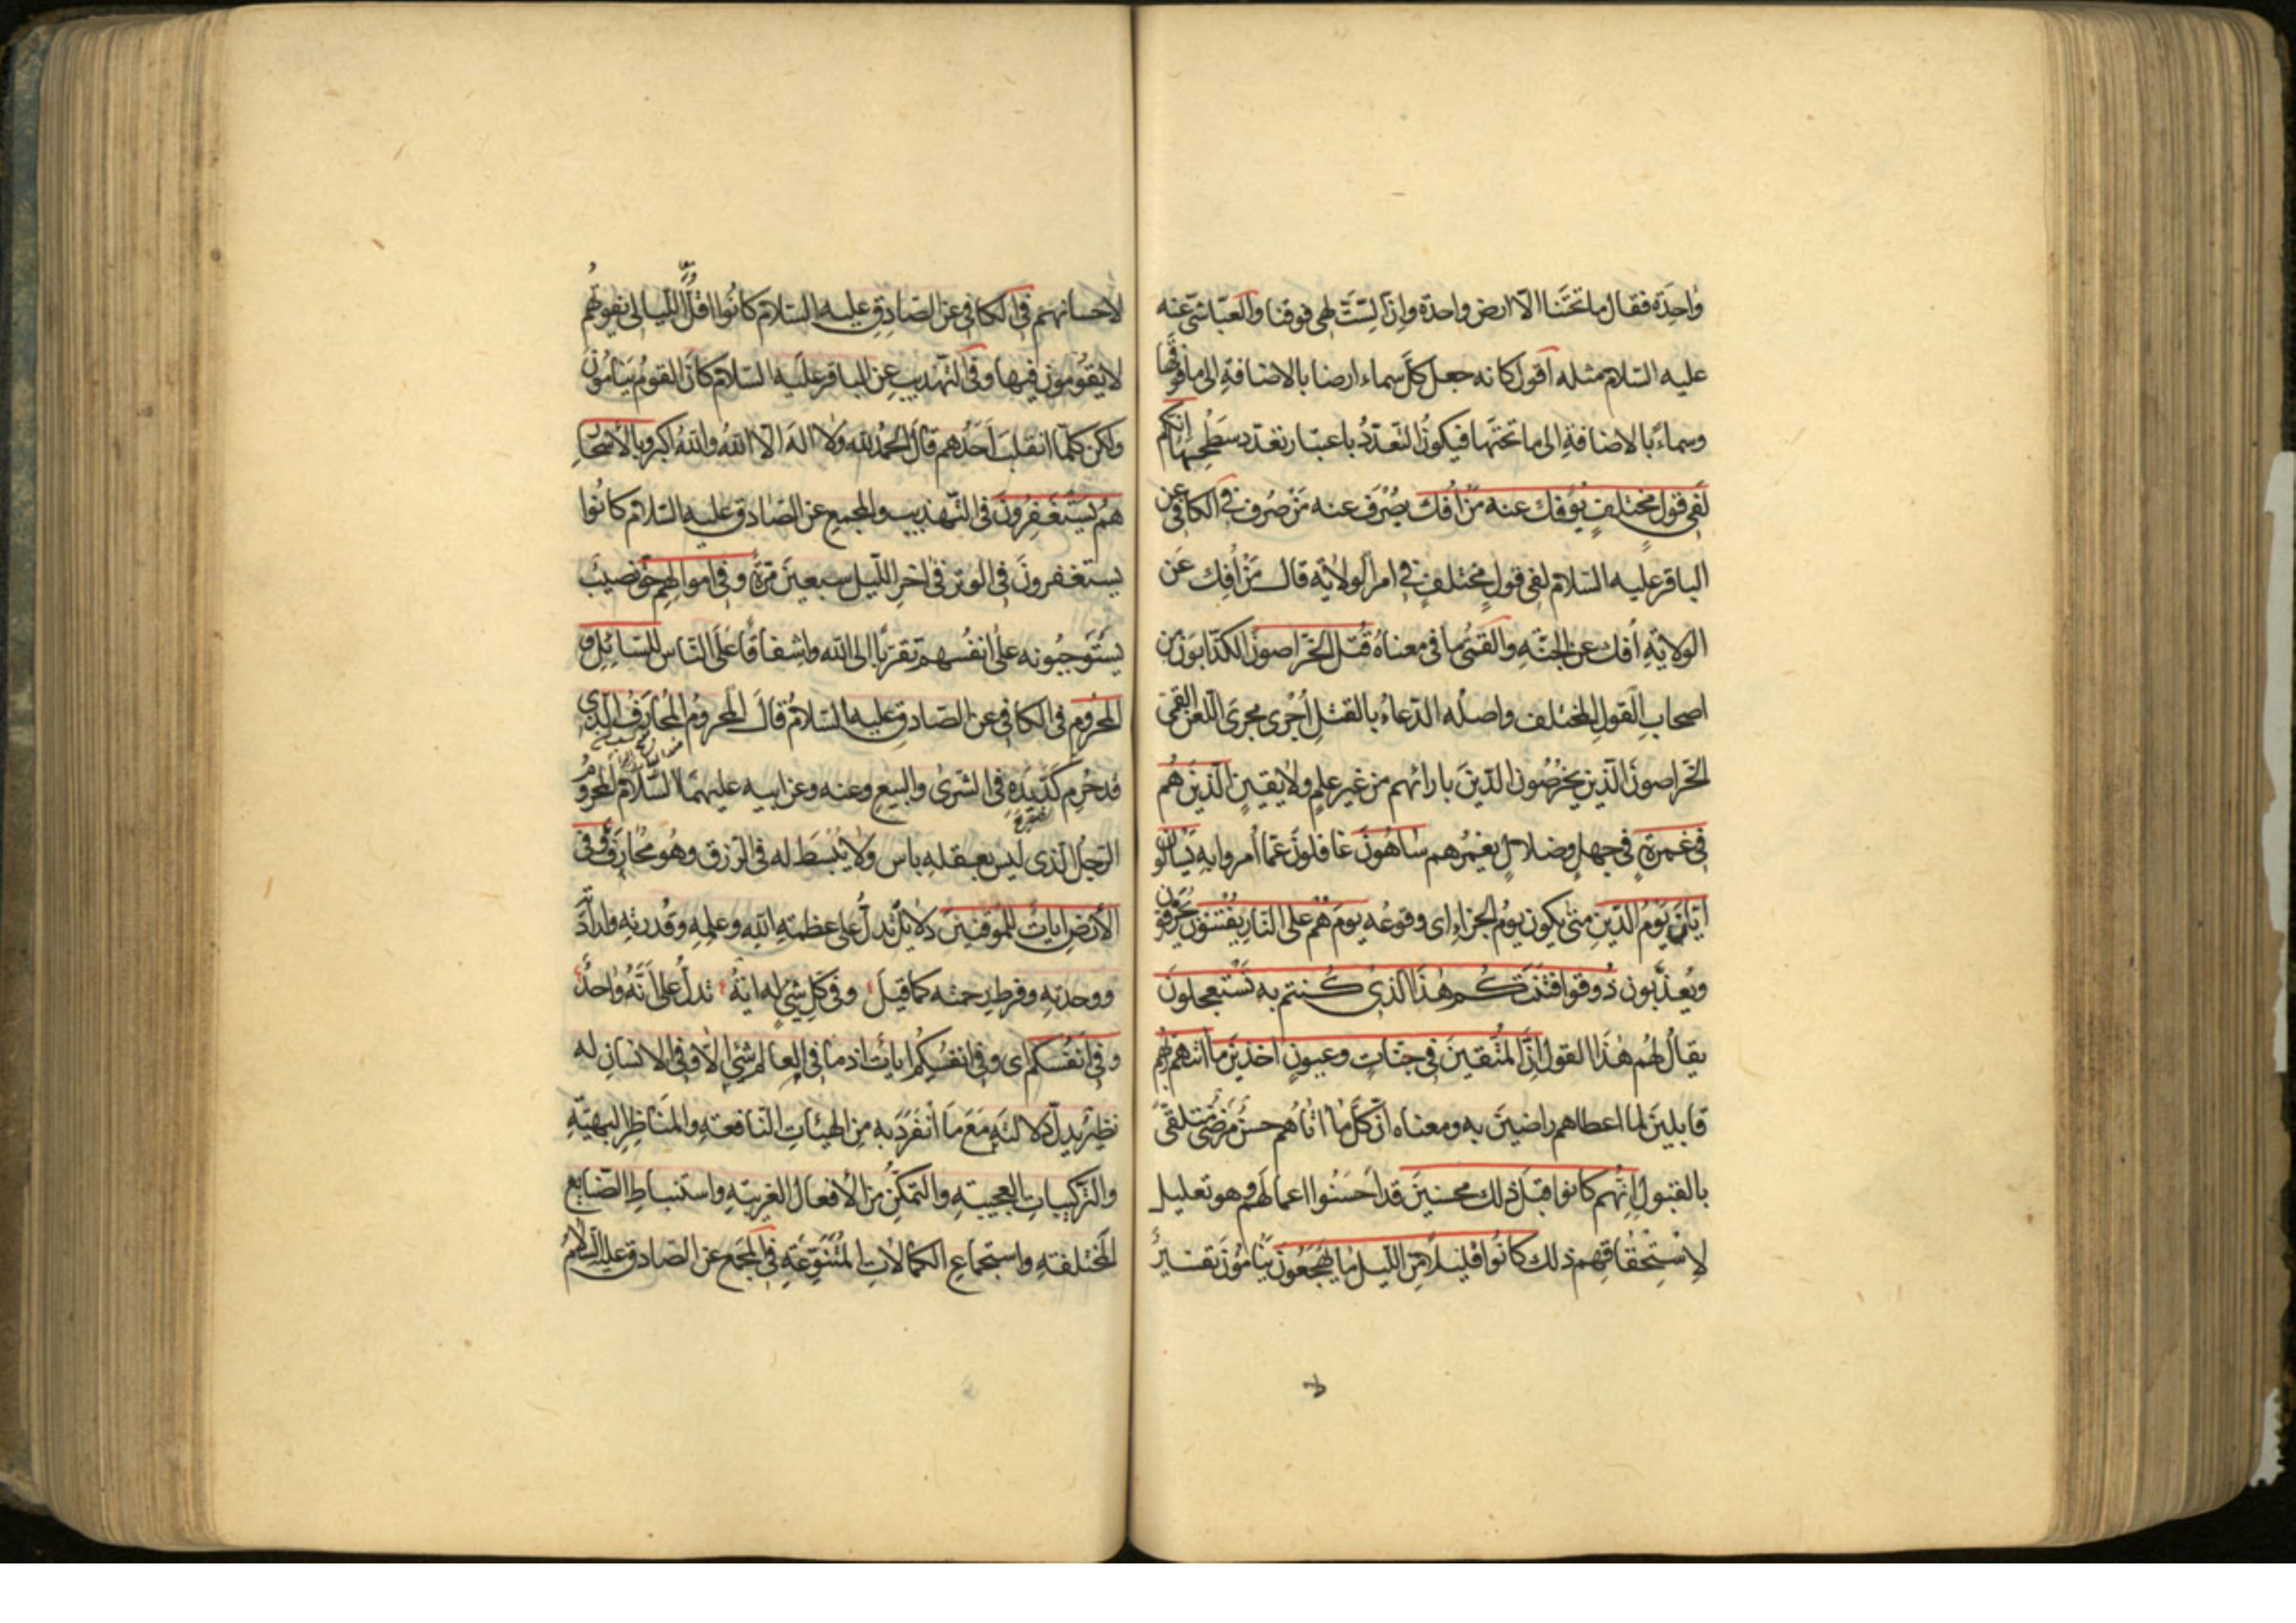 واحِدَة فقال ما تحتَنا الّا ارض واحدة وانّ السّتّ لهى فوقنا والعيّاشىّ عنه
عليه السّلام مثله اقول كانه جعل كلّ سماء ارضا بالاضافةِ الى ما فوقها
وسماءً بالاضافةِ الى ما تحتَها فيكونُ التّعدّدُ باعتبار تعدّد سَطْحيها انّكم
لَفى قولٍ مختلفٍ يُؤفك عنه مَنْ اُفك يُصْرَف عنه مَنْ صُرف فى الكافى عن
الباقر عليه السّلام لفى قولٍ مختلفٍ فى امر الولايَة قال مَنْ اُفِك عَن
الولايَةِ اُفك عن الجنّةِ والقمّى ما فى معناهُ قُتل الخرّاصونَ الكذّابونَ من
اصحابِ القولِ المختلف واصلُه الدّعاءُ بالقتلِ اُجْرى مجرَى اللّعن القمّى
الخرّاصونَ الّذين يخرُصُون الدّينَ بارائهم من غير علمٍ ولا يقينٍ الّذينَ هُم
فى غمرةٍ فى جهلٍ وضلالٍ يغمُرهم ساهُونَ غافلونَ عمّا اُمروا بهِ يَسْألون
ايّانَ يَوْمُ الدّينِ متىٰ يكون يومُ الجزاءِ اى وقوعُه يومَ هُمْ على النّار يُفْتنونَ يُحْرَقون
ويُعذّبون ذُوقوا فتنتَكُم هٰذا الّذىٰ كُنتم به تَسْتعجلونَ
يقالُ لهُم هٰذا القول انّ المتّقينَ فى جنّاتٍ وعيونٍ اخذينَ ما اتٰهم ربّهم
قابلينَ لما اعطاهم راضينَ به ومعناه انّ كلّ ما اتاهُم حسنٌ مَرْضىٌّ متلقّىً
بالقبولِ انّهُم كانوا قبلَ ذلك محسنينَ قد اَحسَنُوا اعمالَهُم وهو تعليل
لِاسْتِحقاقِهِم ذلك كانُوا قليلًا مِنَ اللّيل ما يَهْجَعُونَ يَنامُونَ تفسيرٌ
لاحسانهم فى الكافى عن الصّادِقِ عليه السّلام كانُوا اقلّ اللّيالى تفوتُهم
لا يقوُمون فيها وفى التّهذيب عن الباقر عليه السّلام كانَ القومُ ينامُونَ
ولكن كلّما انقلبَ اَحَدُهم قالَ الحمدُ للهِ ولا الٰهَ الّا اللهُ واللهُ اكبر وبالاَسْحارِ
هُم يَسْتَغفِرُونَ فى التّهذيب والمجمع عن الصّادق عليه السّلام كانُوا
يستغفرونَ فى الوتر فى اخر اللّيل سبعينَ مرّةً وفى اموالِهِم حقٌّ نصيبٌ
يَستَوجبُونه على انفُسهم تقرّبًا الى الله واشفاقًا على النّاس للسّائلِ و
المحرُوم فى الكافى عن الصّادقِ عليه السّلامُ قالَ المحرومُ المُحارَفُ الّذى
قد حُرم كدّ يدِهِ فى الشّرىٰ والبيع وعنه وعن ابيه عليهما السّلام المحرُومُ
الرّجُل الّذى ليسَ بعقلهِ باس ولا يُبْسَطَ له فى الرّزق وهو مُحارَفٌ وفى
الأرضِ اياتٌ للمُوقنينَ دلايلُ تدلُّ على عظمةِ اللهِ وعلمِهِ وقُدرتِهِ وارادَتهِ
ووحدتِهِ وفرطِ رحمتهِ كما قيلَ وفى كلّ شىءٍ له ايةٌ تدلّ على اَنّهُ واحدٌ
وفى اَنفُسكم اى وفى انفُسِكُم اياتٌ اذ ما فى العالم شىءٌ الّا وفى الانسانِ له
نظيرٌ يدلّ دلالتَهُ مَعَ ما اَنْفَرَدَ به مِنَ الهيئاتِ النّافعةِ والمَناظِرِ البهيّةِ
والتّركيبات العجيبةِ والتّمكّنِ مِنَ الأفعال الغريبةِ واستنباطِ الصّنايع
المختلفةِ واستجماعِ الكمالاتِ المُتنوّعَةِ فى المجمَع عن الصّادقِ عليه السّلامُ